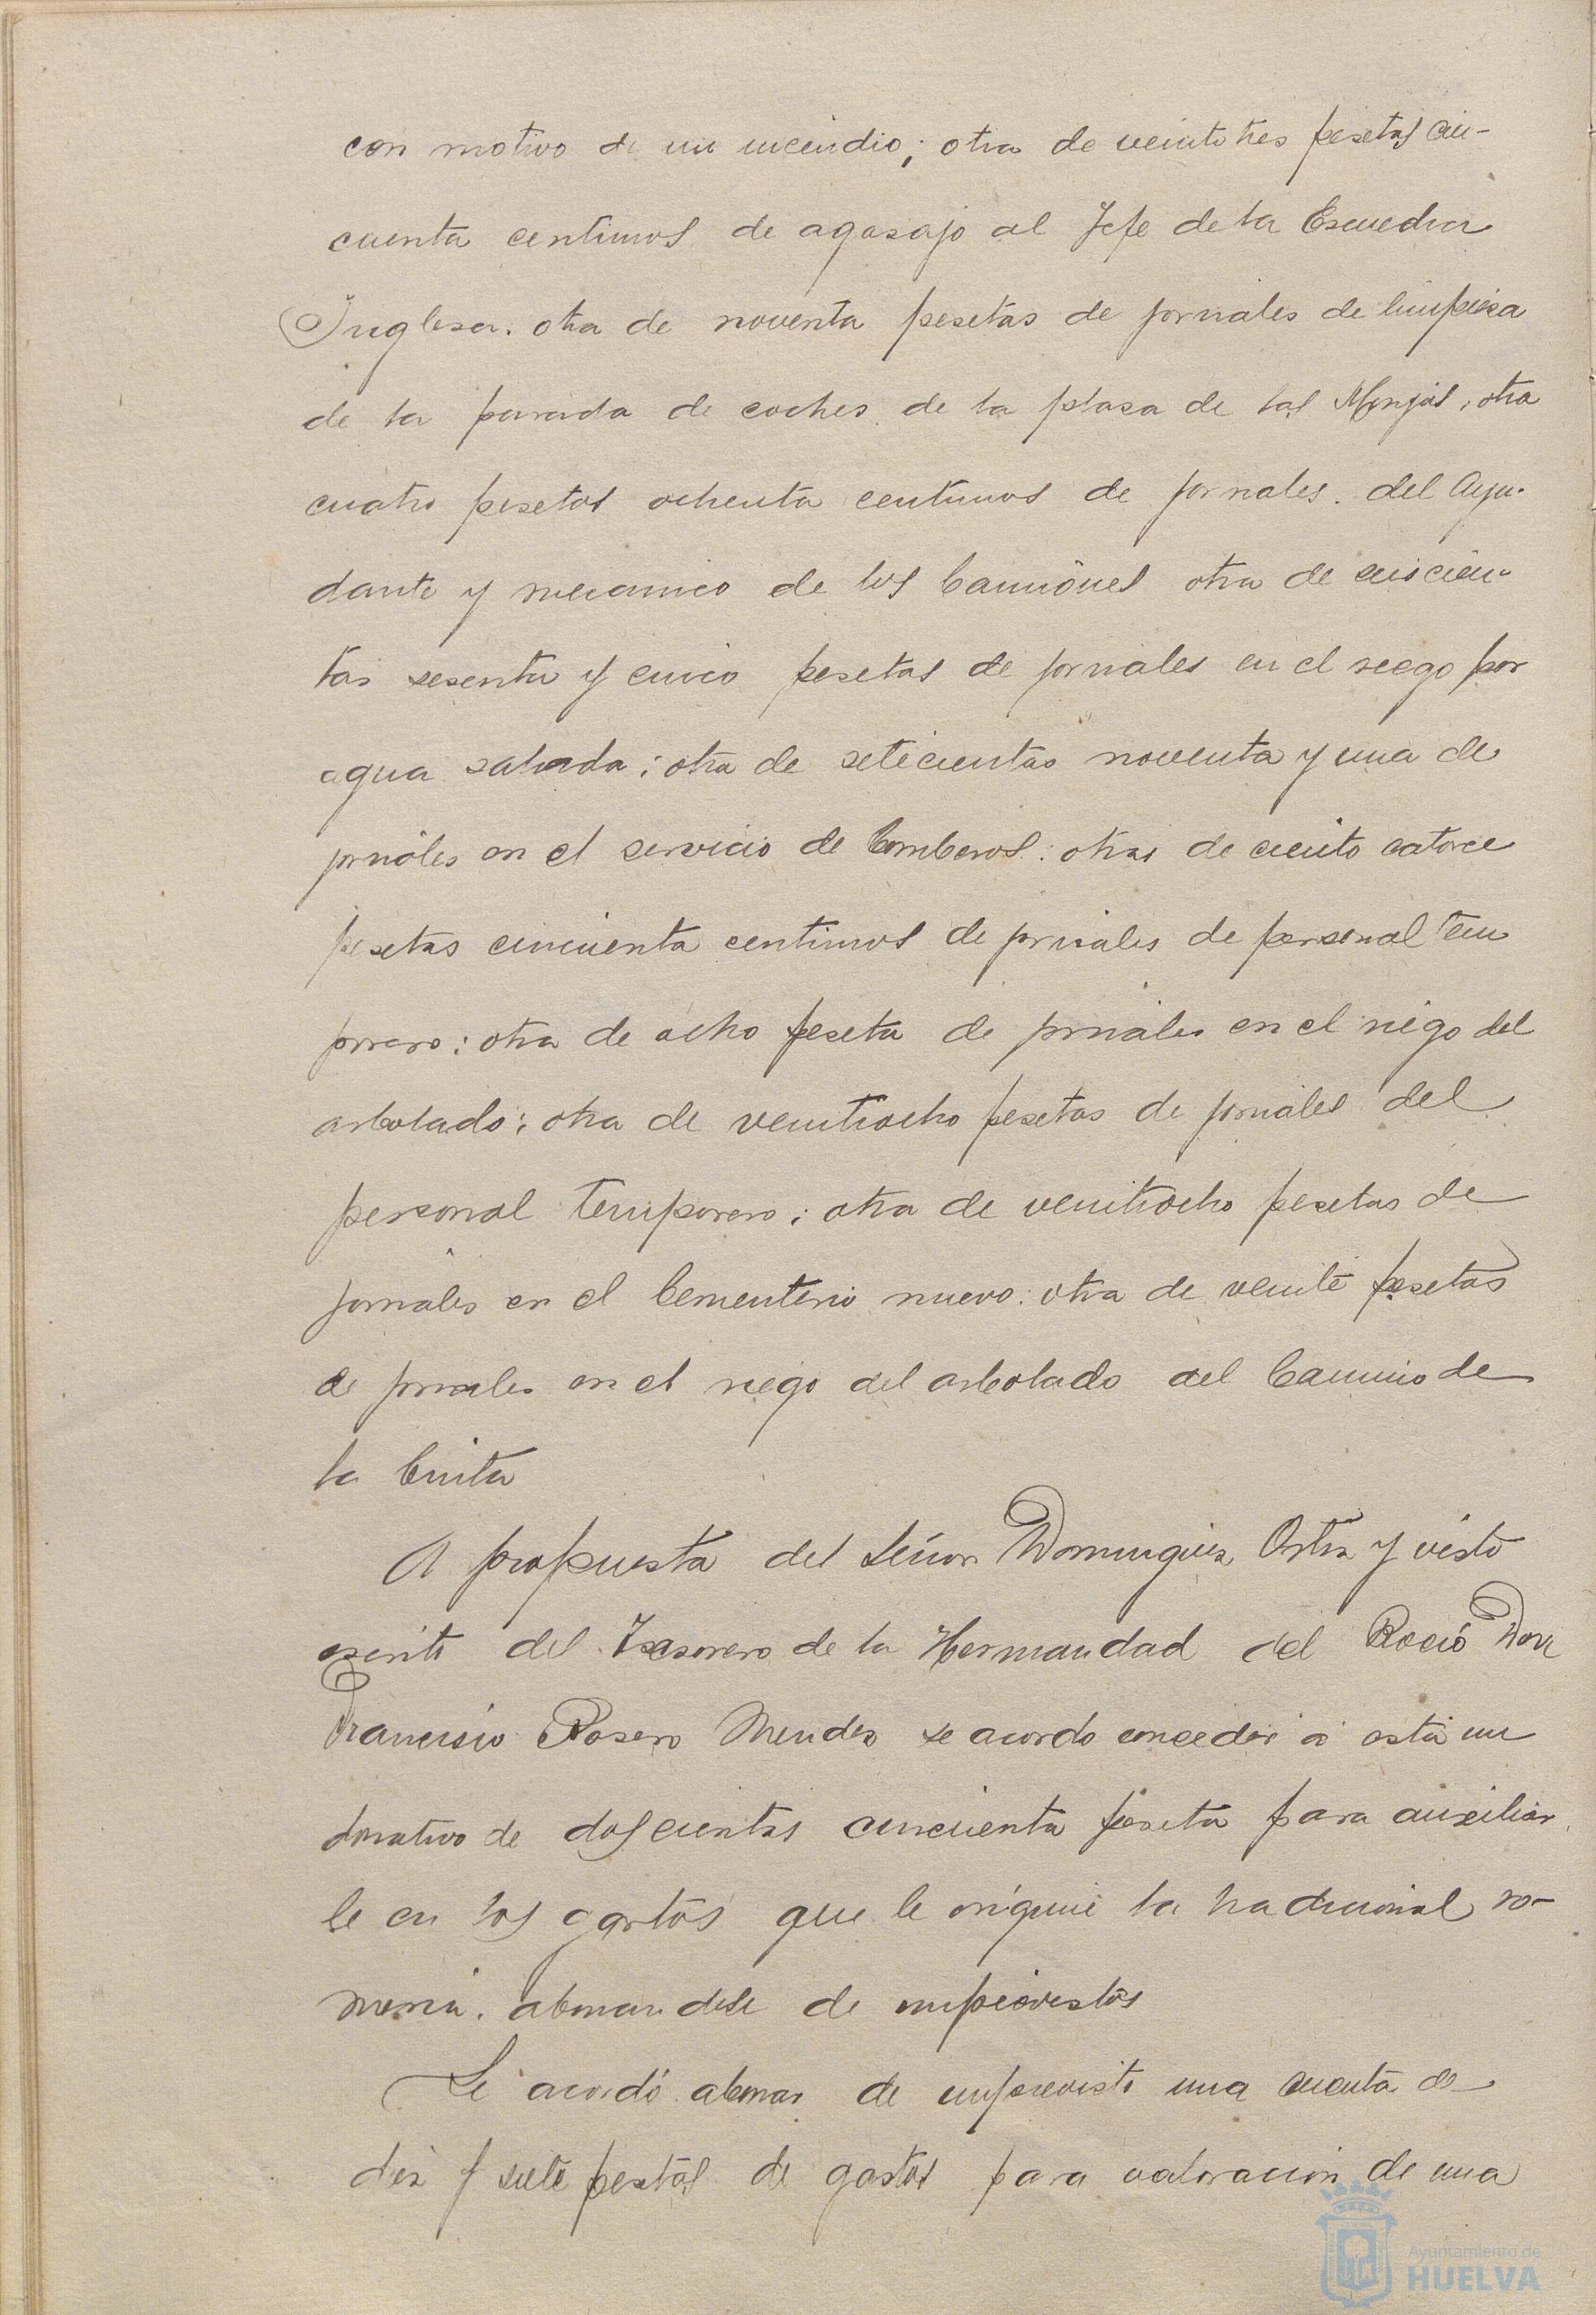 con motivo de un incendio; otra de veintitres pesetas cin-
cuenta centimos de agasajo al Jefe de la Escuedra
Inglesa. otra de noventa pesetas de jornales de limpieza
de la parada de coches de la plaza de las Monjas, otra
cuatro pesetas ochenta centimos de jornales del Ayu-
dante y mecanico de los Camiones otra de seiscien-
tas sesenta y cinco pesetas de jornales en el riego por
agua salada; otra de setecientas noventa y una de
jornales en el servicio de Bomberos: otras de ciento catorce
pesetas cincuenta centimos de jornales de personal tem
porero: otra de ocho peseta de jornales en el riego del
arbolado; otra de veintiocho pesetas de jornales del
personal temporero; otra de veintiocho pesetas de
jornales en el Cementerio nuevo: otra de veinte pesetas
de jornales en el riego del arbolado del Camino de
la Cinta
A propuesta del Señor Dominguez Ortiz y visto
escrito del Tesorero de la Hermandad del Rocio Don
Francisco Rosero Mendez se acordo conceder a esta un
donativo de doscientas cincuenta peseta para auxiliar
le en los gastos que le origine la tradicional ro-
meria. abonandose de imprevistos
Se acordó abonar de imprevisto una cuenta de
diez y siete pesetas de gastos para valoracion de una
Ayuntamiento de
HUELVA